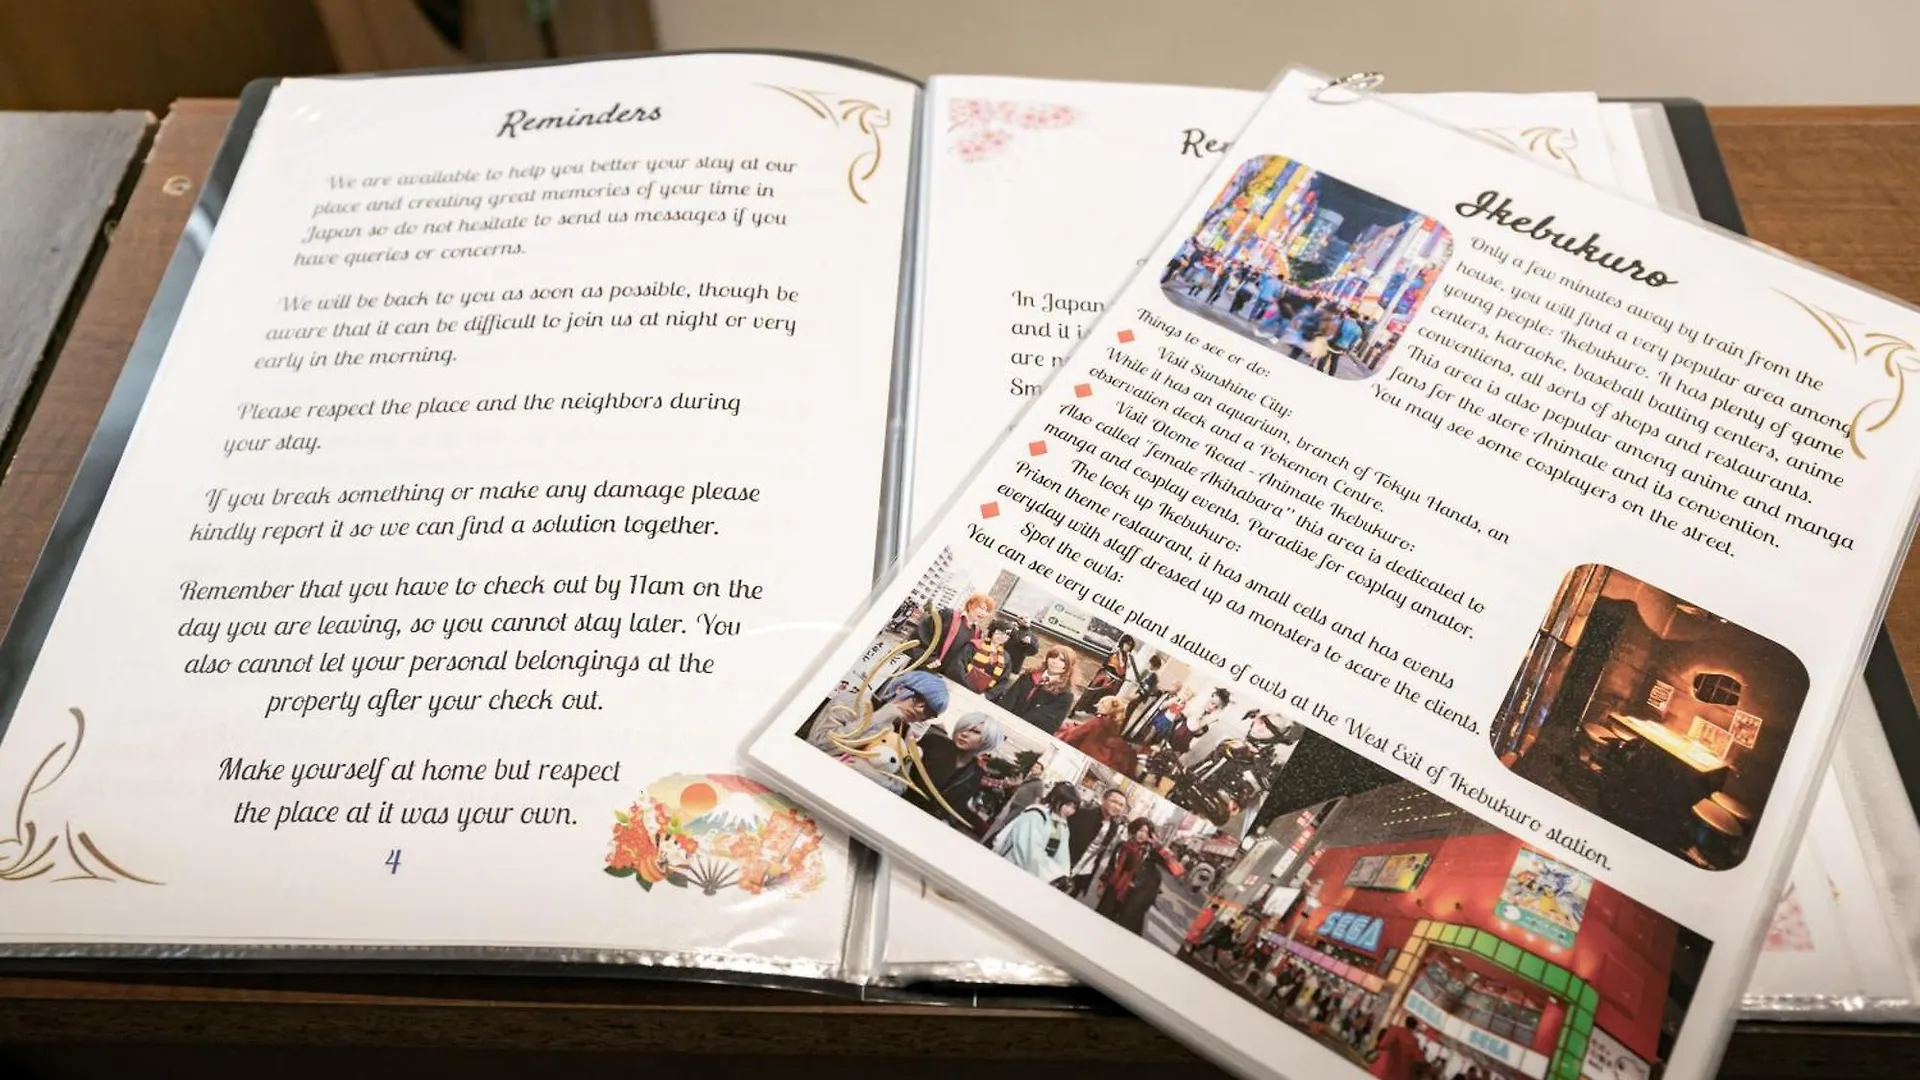 Reminders
We are available to help you better your stay at our
place and creating great memories of your time in
Japan so do not hesitate to send us messages if you
have queries or concerns.
We will be back to you as soon as possible, though be
aware that it can be difficult to join us at night or very
early in the morning.
Please respect the place and the neighbors during
your stay.
If you break something or make any damage please
kindly report it so we can find a solution together.
Remember that you have to check out by 11am on the
day you are leaving, so you cannot stay later. You
also cannot let your personal belongings at the
property after your check out.
Make yourself at home but respect
the place at it was your own.
4
In Japan
and it i
are n
Sm
Ikebukuro
Only a few minutes away by train from the
house, you will find a very popular area among
young people: Ikebukuro. It has plenty of game
centers, karaoke, baseball batting centers, anime
conventions, all sorts of shops and restaurants.
This area is also popular among anime and manga
fans for the store Animate and its convention.
You may see some cosplayers on the street.
Things to see or do:
Visit Sunshine City:
While it has an aquarium, branch of Tokyu Hands, an
observation deck and a Pokemon Centre.
Visit Otome Road - Animate Ikebukuro:
Also called "female Akihabara" this area is dedicated to
manga and cosplay events. Paradise for cosplay amator.
The lock up Ikebukuro:
Prison theme restaurant, it has small cells and has events
everyday with staff dressed up as monsters to scare the clients.
Spot the owls:
You can see very cute plant statues of owls at the West Exit of Ikebukuro station.
SEGA
SEGA
SEGA